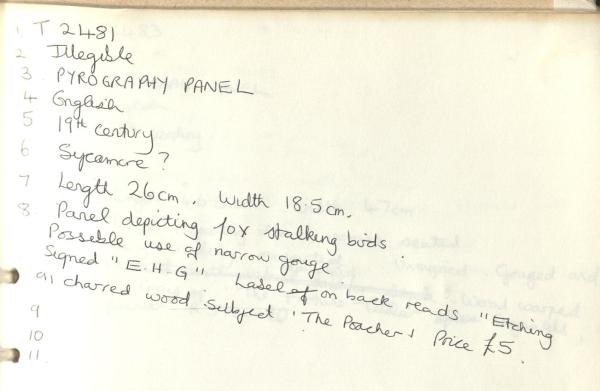 1 T 2481
2 Illegible
3 PYROGRAPHY PANEL
4 English
5 19th century
6 Sycamore ?
7 Length 26cm. Width 18.5cm.
8 Panel depicting fox stalking birds.
Possible use of narrow gouge
Signed "E.H.G". Label of on back reads "Etching
on charred wood. Subject 'The Poacher' Price £5.
9
10
11.